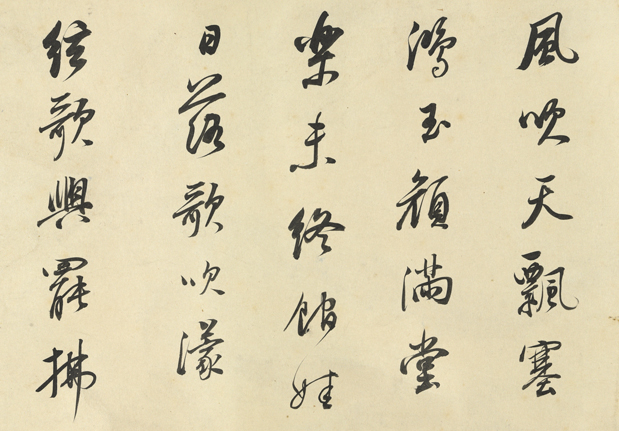 風吹天飄塞
鴻玉顏滿堂
樂未終館娃
日落歌吹濛
絃歌興罷拂